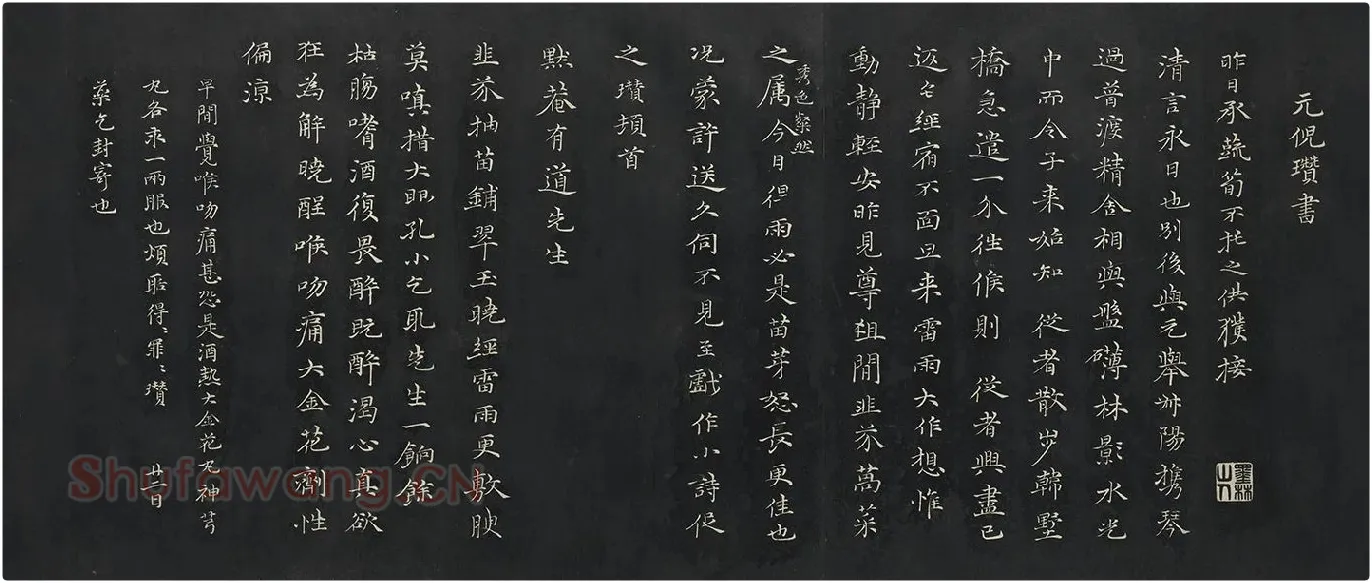 元倪瓚書
昨日承蔬筍不托之供獲接
清言永日也別後與元舉姊陽攜琴
過普濟精舍相與盤礴林影水光
中而令子来始知 從者散步韓墅
橋急遣一介往候則 從者興盡已
返
經宿不面旦来雷雨大作想惟
動静輕安昨見尊俎間韭芥萵菜
之属秀色粲然今日得雨必是苗芽怒長更佳也
况蒙許送久伺不見至戲作小詩促
之瓚頓首
黙菴有道先生
韭芥抽苗鋪翠玉曉經雷雨更敷腴
莫嗔措大眼孔小乞取先生一餉餘
枯腸嗜酒復畏醉既醉渴心真欲
狂為解曉酲喉吻痛大金花劑性
偏涼
早間覺喉吻痛甚恐是酒熱大金花丸神芎
丸各求一兩服也煩聒得〻罪〻瓚 廿一日
藥乞封寄也
墨林山人
Shufawang.CN